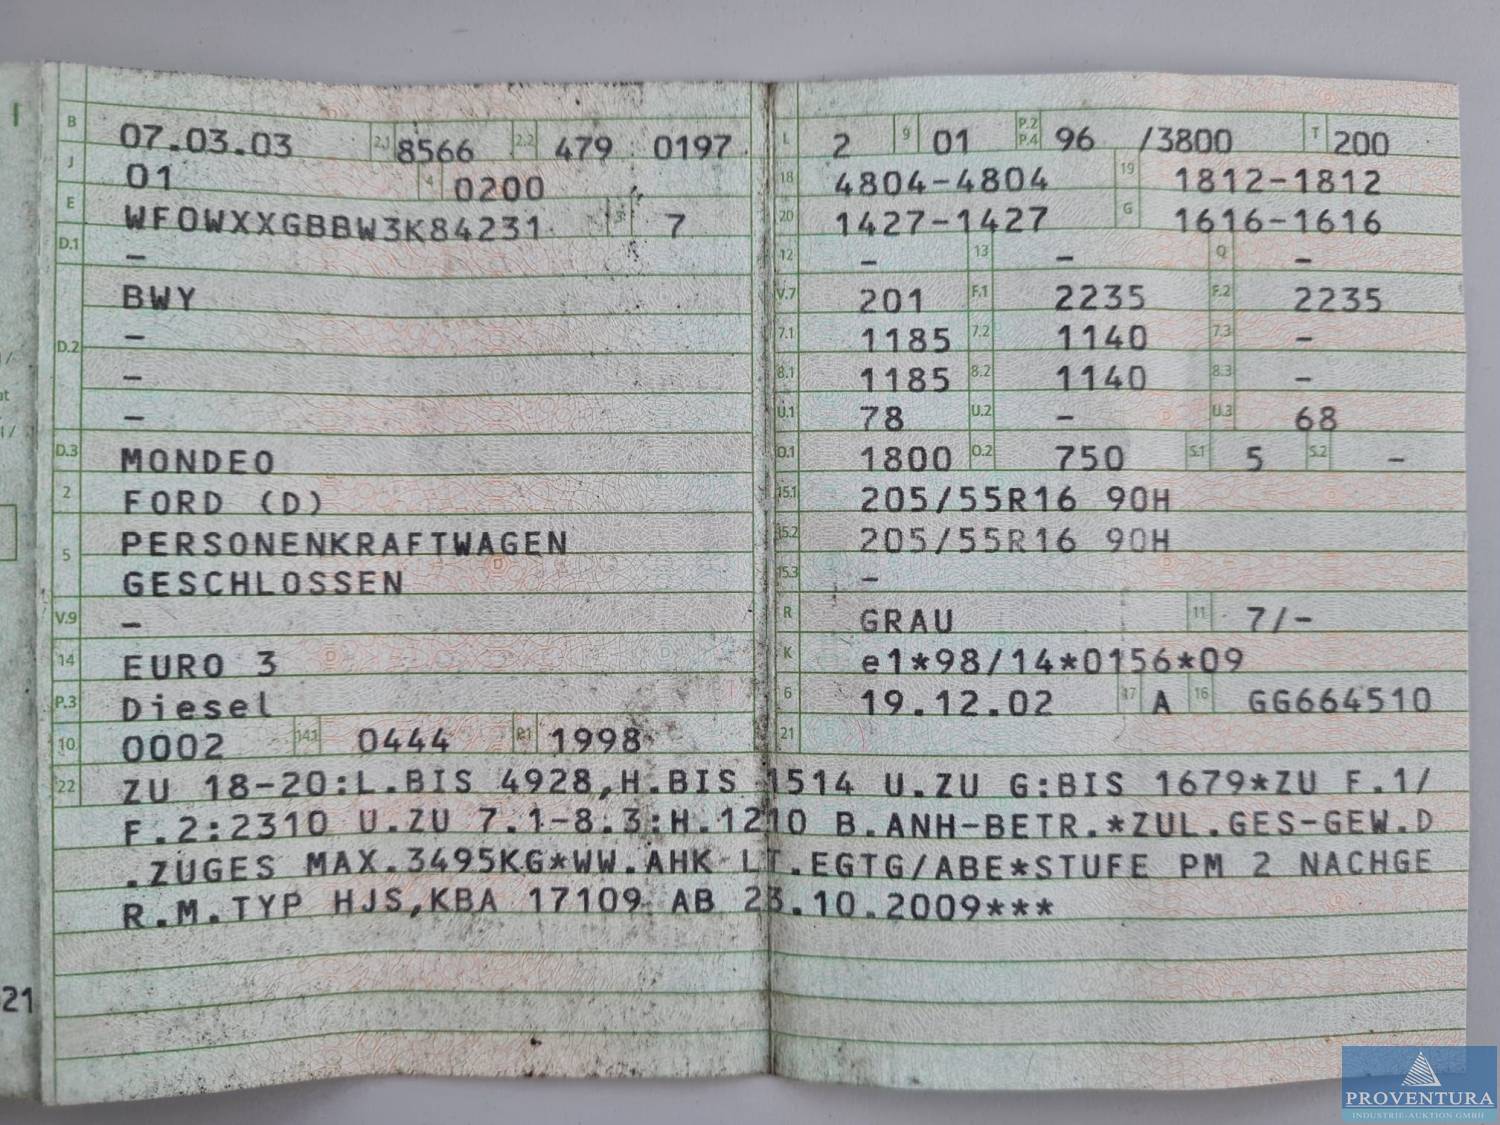 B 07.03.03 2.1 8566 2.2 479 0197
J 01 4 0200
E WF0WXXGBBW3K84231 3 7
D.1 –
D.2 BWY
–
–
–
D.3 MONDEO
2 FORD (D)
5 PERSONENKRAFTWAGEN
GESCHLOSSEN
V.9 –
14 EURO 3
P.3 Diesel
10 0002 14.1 0444 P.1 1998
L 2 9 01 P.2 P.4 96 /3800 T 200
18 4804-4804 19 1812-1812
20 1427-1427 G 1616-1616
12 – 13 – Q –
V.7 201 F.1 2235 F.2 2235
7.1 1185 7.2 1140 7.3 –
8.1 1185 8.2 1140 8.3 –
U.1 78 U.2 – U.3 68
O.1 1800 O.2 750 S.1 5 S.2 –
15.1 205/55R16 90H
15.2 205/55R16 90H
15.3 –
R GRAU 11 7/–
K e1*98/14*0156*09
6 19.12.02 17 A 16 GG664510
21
22 ZU 18-20:L.BIS 4928,H.BIS 1514 U.ZU G:BIS 1679*ZU F.1/
F.2:2310 U.ZU 7.1-8.3:H.1210 B.ANH-BETR.*ZUL.GES-GEW.D
.ZUGES MAX.3495KG*WW.AHK LT.EGTG/ABE*STUFE PM 2 NACHGE
R.M.TYP HJS,KBA 17109 AB 23.10.2009***
21
PROVENTURA
INDUSTRIE-AUKTION GMBH